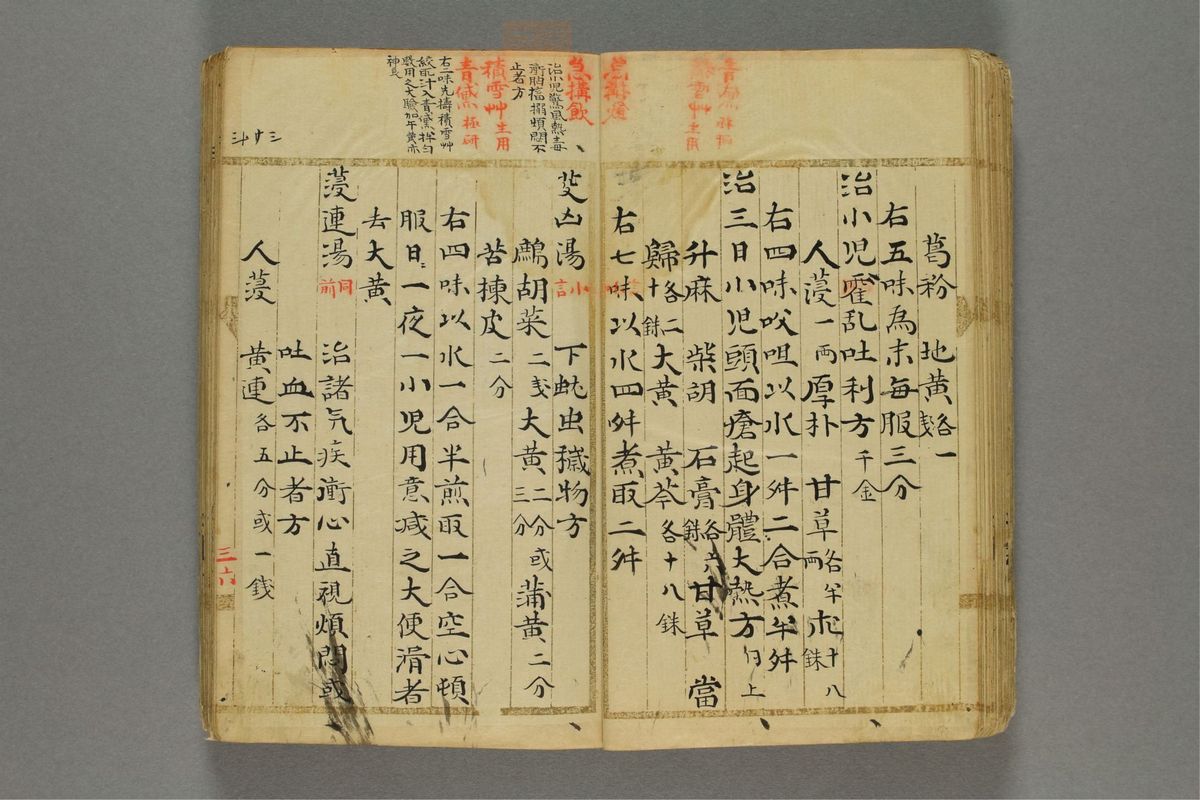 葛粉 地黄各一錢
右五味為末每服三分
治小児霍乱吐利方千金
人蓡一兩厚朴 甘草各半兩朮十八銖
右四味㕮咀以水一舛二合煮半舛
治三日小児頭面瘡起身體大熱方同上
升麻 柴胡 石膏各六銖甘草 當
歸各十二銖大黄 黄芩各十八銖
右七味以水四舛煮取二舛
急搆飲
治小児驚風熱毒
前胸搐搦頻悶不
止者方
積雪艸生用
青黛極研
右二味先擣積雪艸
絞取汁入青黛拌匀
服用之大驗加牛黄亦
神良
艾凶湯 小言 下虵虫穢物方
鷓胡菜二錢大黄二分或三分蒲黄二分
苦楝皮二分
右四味以水一合半煎取一合空心頓
服日一夜一小児用意减之大便滑者
去大黄
蓡連湯同前 治諸気疾衝心直視煩悶或
吐血不止者方
人蓡 黄連各五分或一錢
三六